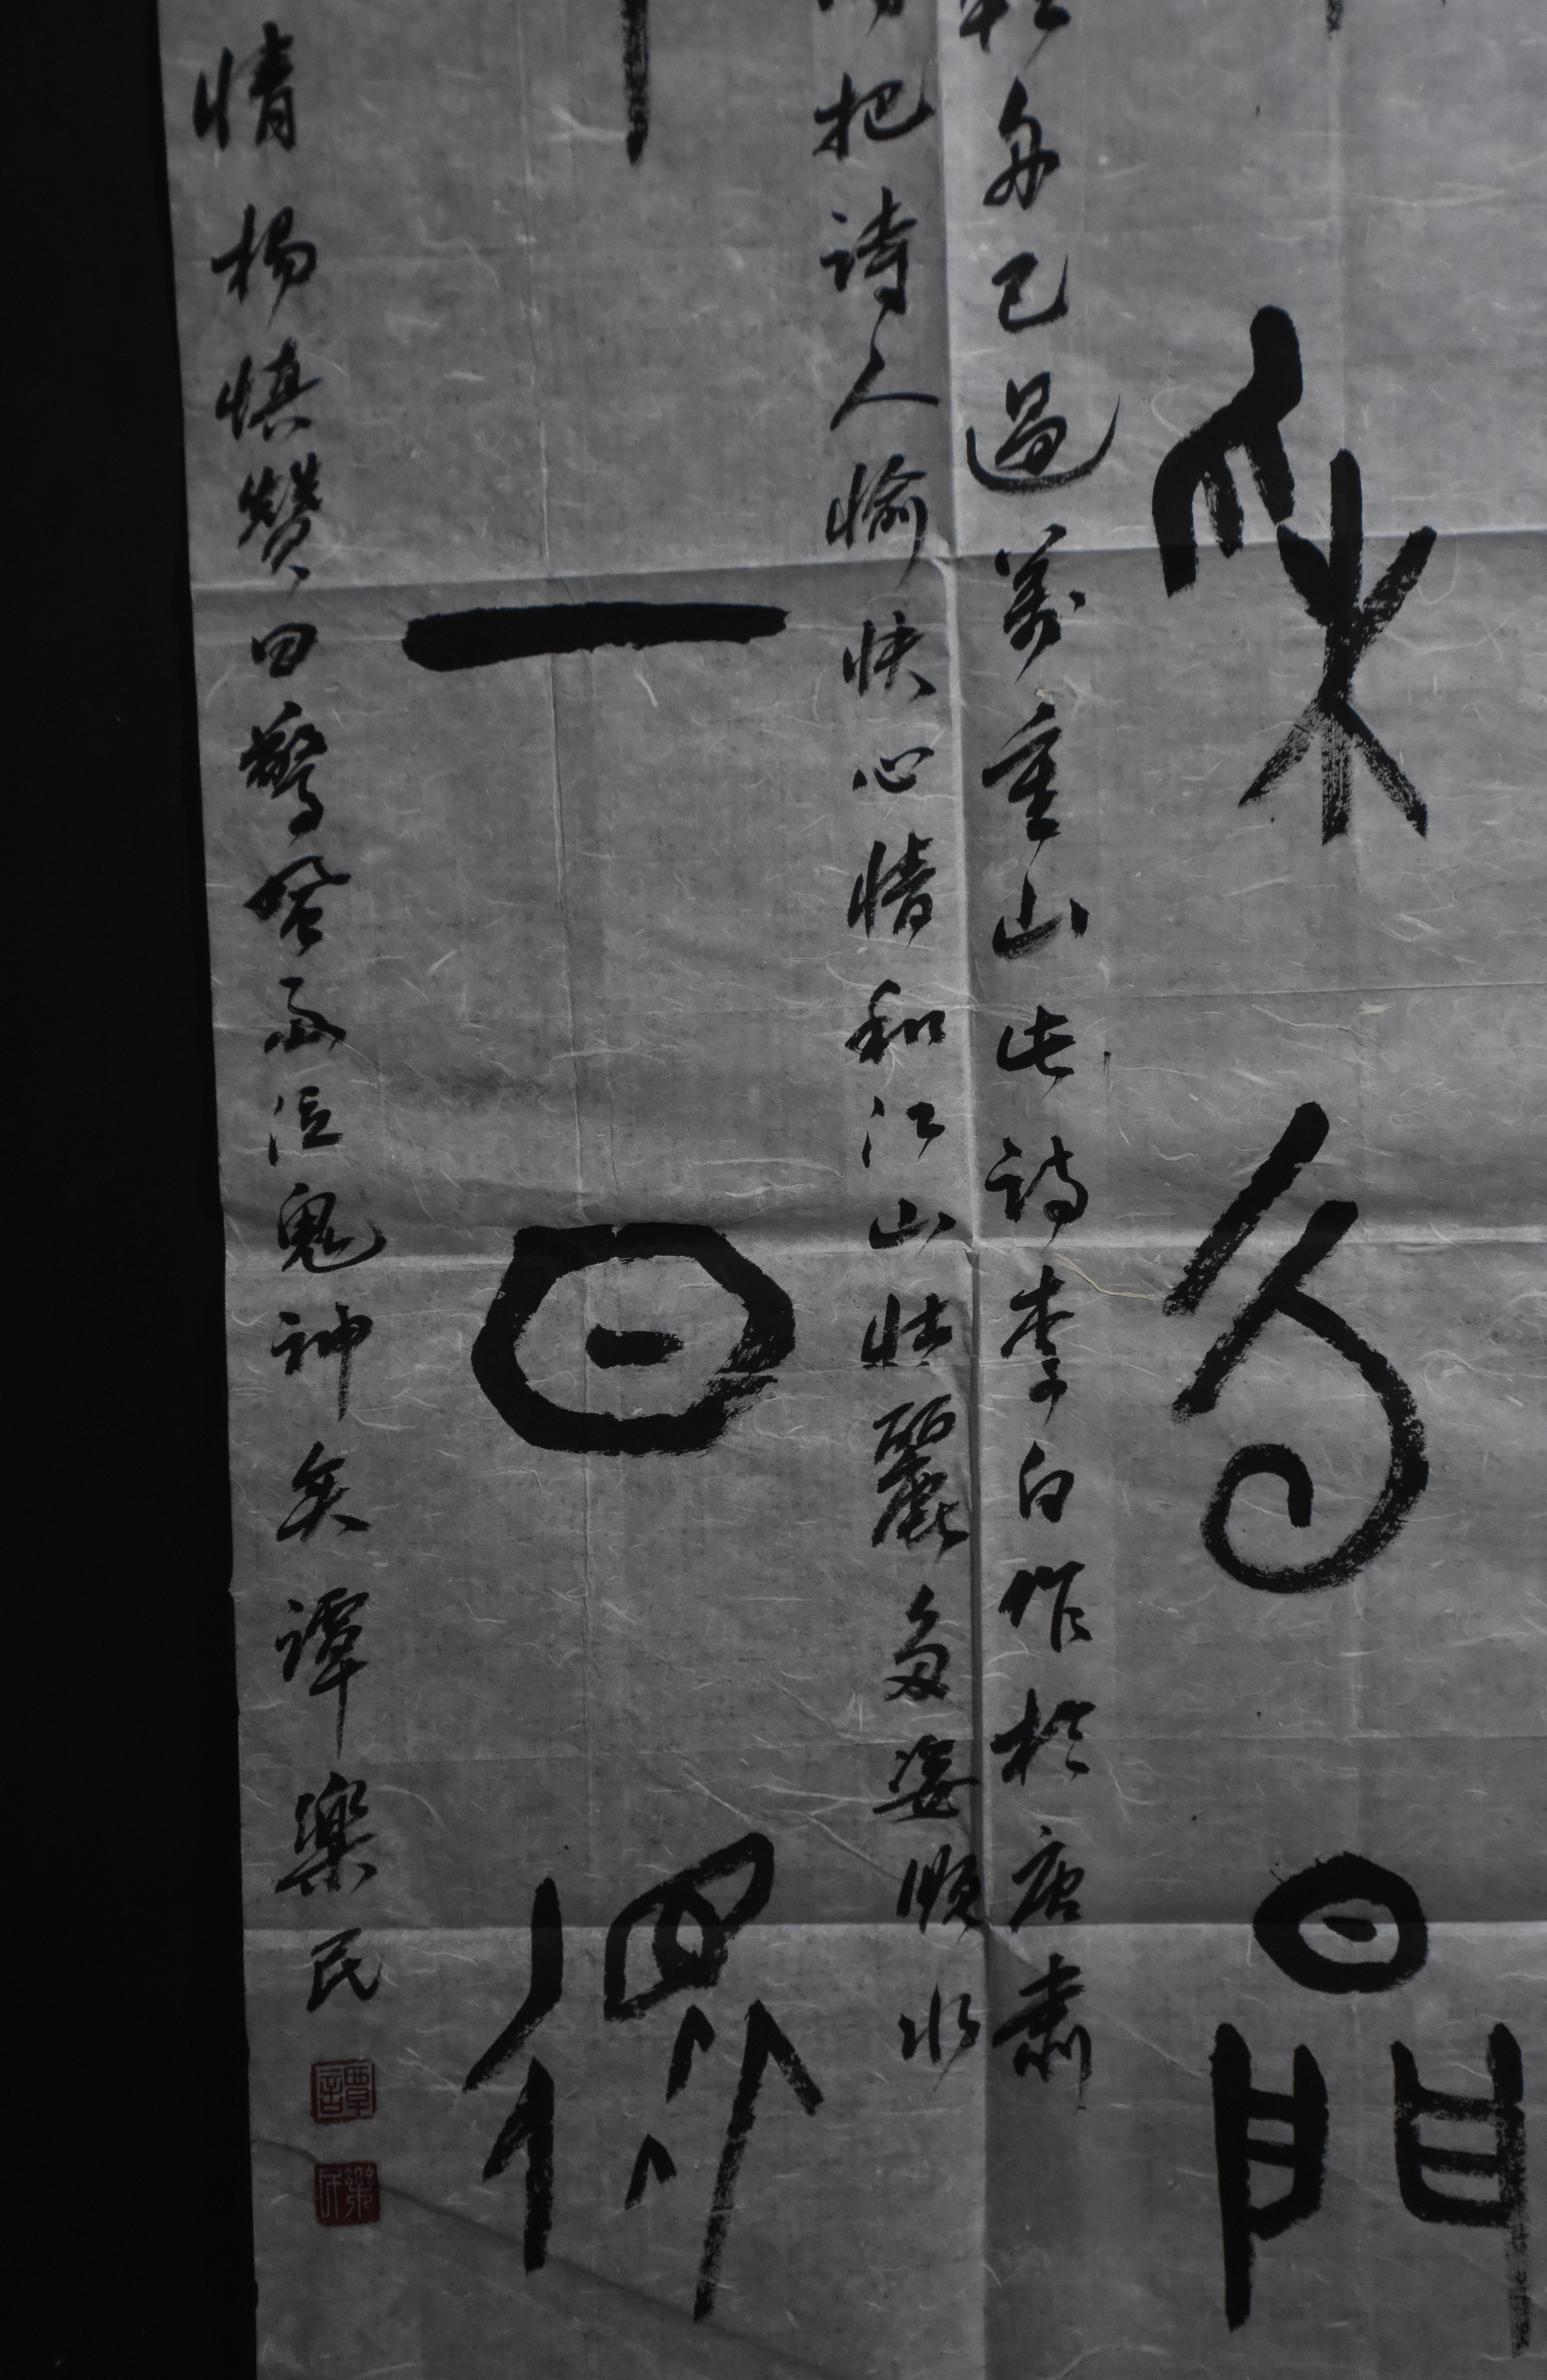 采云間
輕舟已過萬重山此詩李白作於唐肅
把詩人愉快心情和江山壯麗多姿順水
一日還
情楊慎贊曰驚風雨泣鬼神矣譚樂民
譚
樂民